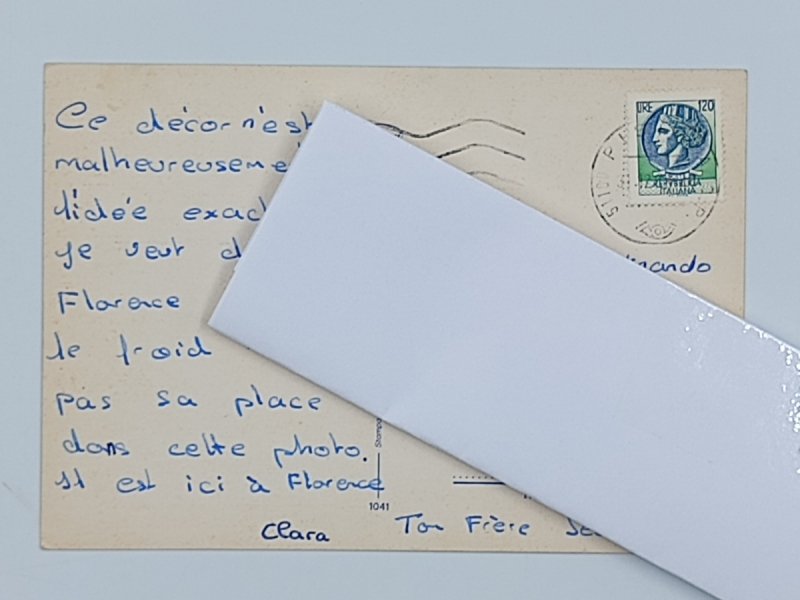 Ce décor n'est
malheureuseme
l'idée exac
je veut d
Florence
le froid
pas sa place
dans cette photo.
Il est ici à Florence
Clara
Ton Frère
1041
LIRE 120
REPUBBLICA
ITALIANA